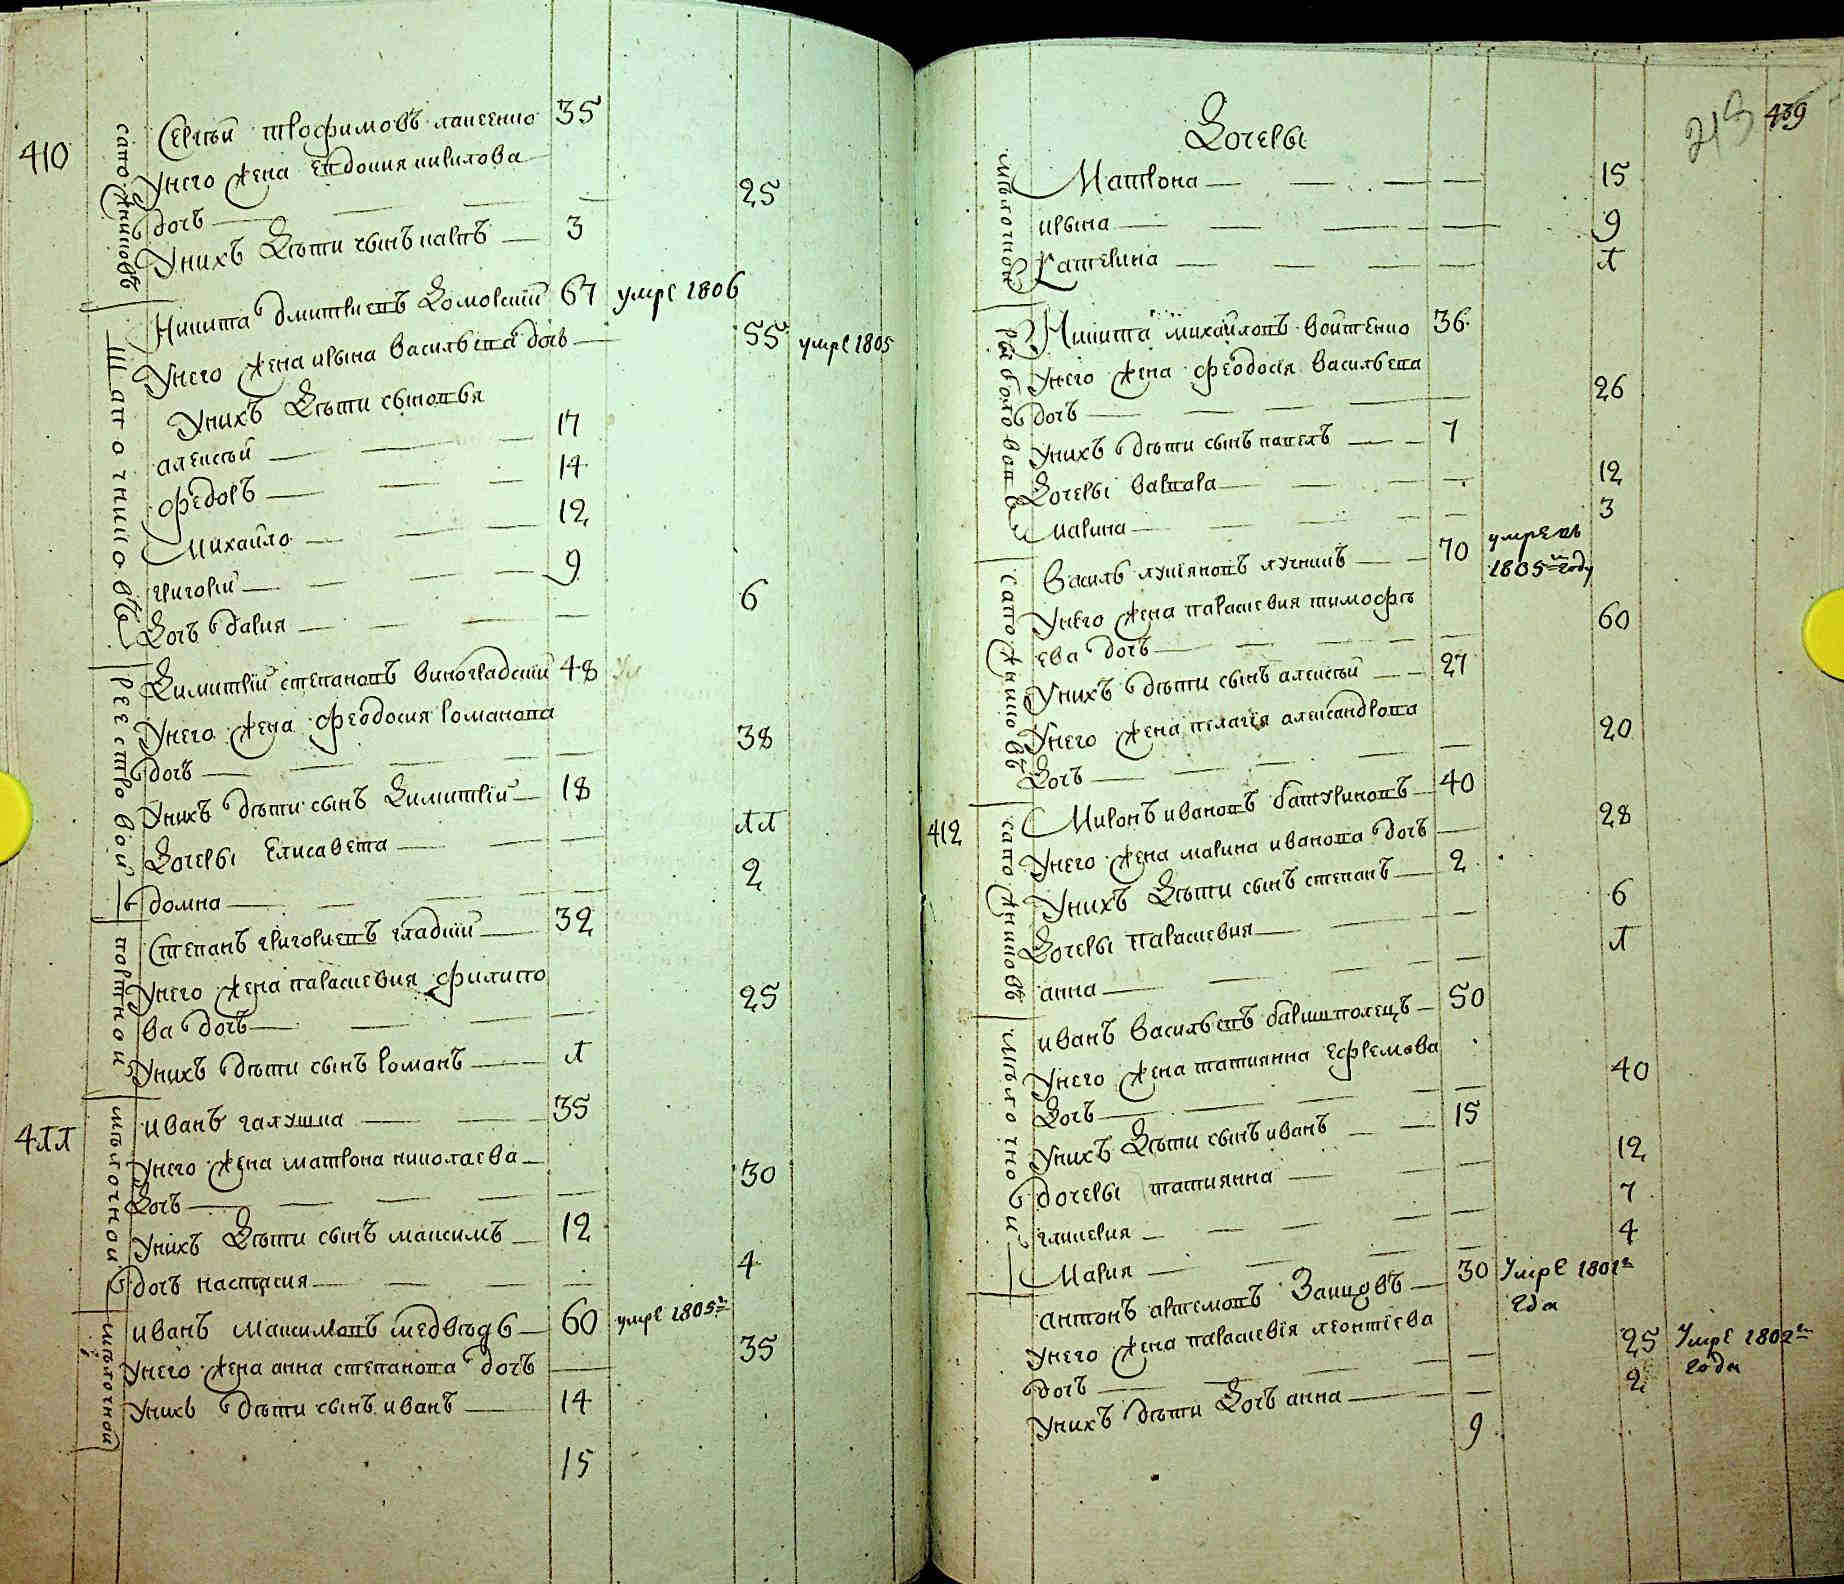 410
сапожниковъ
Сергѣй трофимовъ лансенко 35
Унего жена евдокия кирилова
дочь — — — — 25
Унихъ Дѣти сынъ карпъ — 3
Шапочниковъ
Никита дмитриевъ Домовскій 67 умре 1806
Унего жена ирына васильева дочь — 55 умре 1805
Унихъ Дѣти сыновья
алексѣй — — — 17
федоръ — — — 14
Михайло — — — 12
григорій — — — 9
Дочь дария — — — — 6
реестровой
Димитрій степановъ виноградскій 48
Унего жена феодосия романова
дочь — — — — 38
Унихъ дѣти сынъ Димитрій — 18
Дочеры Елисавета — — — 11
домна — — — — 2
портной
Степанъ григориевъ гладкій — 32
Унего жена параскевия филипо
ва дочь — — — — 25
Унихъ дѣти сынъ романъ — 1
411
мѣлочной
иванъ галушка — — 35
Унего жена матрона николаева —
Дочь — — — — 30
Унихъ Дѣти сынъ максимъ — 12
дочь настасия — — — — 4
мѣлочной
иванъ максимовъ медвѣдь — 60 умре 1805г
Унего жена анна степанова дочь — 35
Унихъ дѣти сынъ иванъ — 14
15
439
213
Дочеры
мѣлочной
Матрона — — — — 15
ирына — — — — 9
Катерина — — — — 1
рыболововъ
Никита михайловъ войтенко 36
Унего жена феодосія васильева
дочь — — — — 26
Унихъ дѣти сынъ павелъ — — 7
Дочеры варвара — — — — 12
марина — — — — 3
сапожниковъ
василь лукіяновъ лучникъ — — 70 умре въ
1805м году
Унего жена параскевия тимофѣ
ева дочь — — — — 60
Унихъ дѣти сынъ алексѣй — — 27
Унего жена пелагія александрова
Дочь — — — — 20
412
сапожниковъ
Миронъ ивановъ батуриновъ — 40
Унего жена марина иванова дочь — 28
Унихъ Дѣти сынъ степанъ — 2
Дочеры параскевия — — — 6
анна — — — — 1
мѣлочной
иванъ васильевъ баришполецъ — 50
Унего жена татиянна ефремова
Дочь — — — — 40
Унихъ Дѣти сынъ иванъ — — 15
дочеры татиянна — — — 12
гликерия — — — — 7
Мария — — — — 4
антонъ артемовъ Заицовъ — 30 Умре 1801г
года
Унего жена параскевія леонтіева
дочь — — — — 25 Умре 1802г
года
Унихъ дѣти Дочь анна — — — 2
9